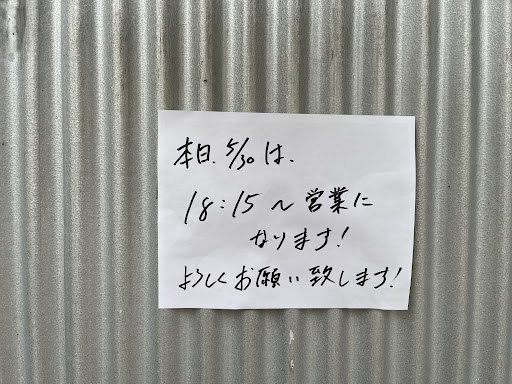 本日、5/30は、
18:15〜営業に
なります!
よろしくお願い致します!